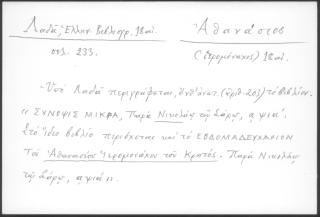 Λαδᾶ, Ἑλλην. Βιβλιογρ. 18 αἰ.
σελ. 233.
Ἀθανάσιος
(ἱερομόναχος) 18 αἰ.
Ὑπὸ Λαδᾶ περιγράφεται, ὑπ' ἀριθ. 201) τὸ βιβλίον.
"ΣΥΝΟΨΙΣ ΜΙΚΡΑ, Παρὰ Νικολάῳ τῷ Σάρῳ, αψια'.
Στὸ ἴδιο βιβλίο περιέχεται καὶ τὸ ΕΒΔΟΜΑΔΕΥΧΑΡΙΟΝ
Τοῦ Ἀθανασίου Ἱερομονάχου τοῦ Κρητός. Παρὰ Νικολάῳ
τῷ Σάρῳ, αψια".